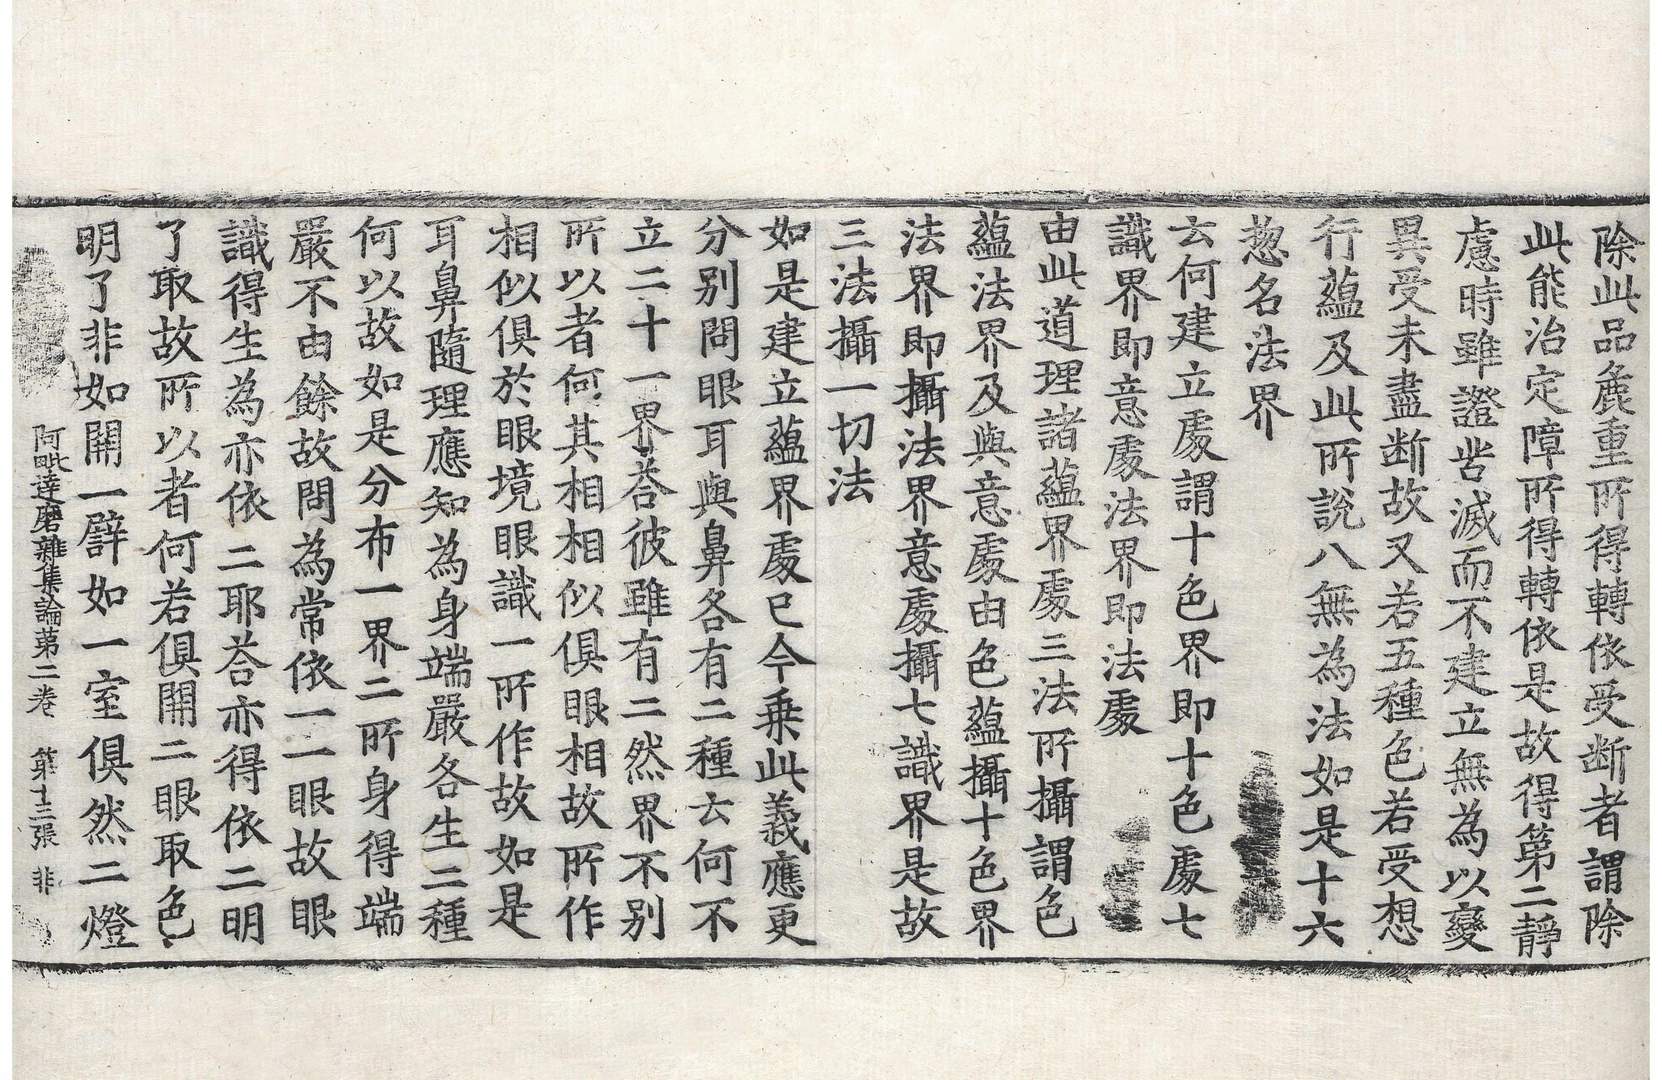 除此品麁重所得轉依受断者謂除
此能治定障所得轉依是故得第二靜
慮時雖證苦滅而不建立無為以變
異受未盡断故又若五種色若受想
行蘊及此所說八無為法如是十六
揔名法界
云何建立處謂十色界即十色處七
識界即意處法界即法處
由此道理諸蘊界處三法所攝謂色
蘊法界及與意處由色蘊攝十色界
法界即攝法界意處攝七識界是故
三法攝一切法
如是建立蘊界處已今乗此義應更
分别問眼耳與鼻各有二種云何不
立二十一界荅彼雖有二然界不别
所以者何其相相似俱眼相故所作
相似俱於眼境眼識一所作故如是
耳鼻隨理應知為身端嚴各生二種
何以故如是分布一界二所身得端
嚴不由餘故問為常依一一眼故眼
識得生為亦依二耶荅亦得依二明
了取故所以者何若俱開二眼取色
明了非如開一譬如一室俱然二燈
阿毗達磨雜集論第二卷 第十三張 非